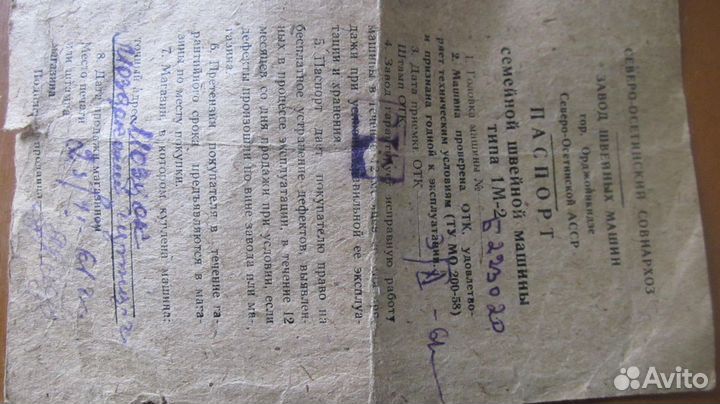 СЕВЕРО-ОСЕТИНСКИЙ СОВНАРХОЗ
ЗАВОД ШВЕЙНЫХ МАШИН
гор. Орджоникидзе
Северо-Осетинской АССР
ПАСПОРТ
СЕМЕЙНОЙ ШВЕЙНОЙ МАШИНЫ
ТИПА 1М-2
1. Головка машины № Б 223020
2. Машина проверена ОТК, удовлетво-
ряет техническим условиям (ТУ МО 200-58)
и признана годной к эксплуатации.
3. Дата приемки ОТК
Штамп ОТК
4. Завод гарантирует исправную работу
машины в течение
дажи при правильной ее эксплуа-
тации и хранения
5. Паспорт дает покупателю право на
бесплатное устранение дефектов, выявлен-
ных в процессе эксплуатации, в течение 12
месяцев со дня продажи при условии, если
дефекты произошли по вине завода или ма-
газина.
6. Претензии покупателя в течение га-
рантийного срока предъявляются в мага-
зины по месту покупки.
7. Магазин, в котором куплена машина:
8. Дата продажи магазином
Место печати
или штампа
магазина
Avito